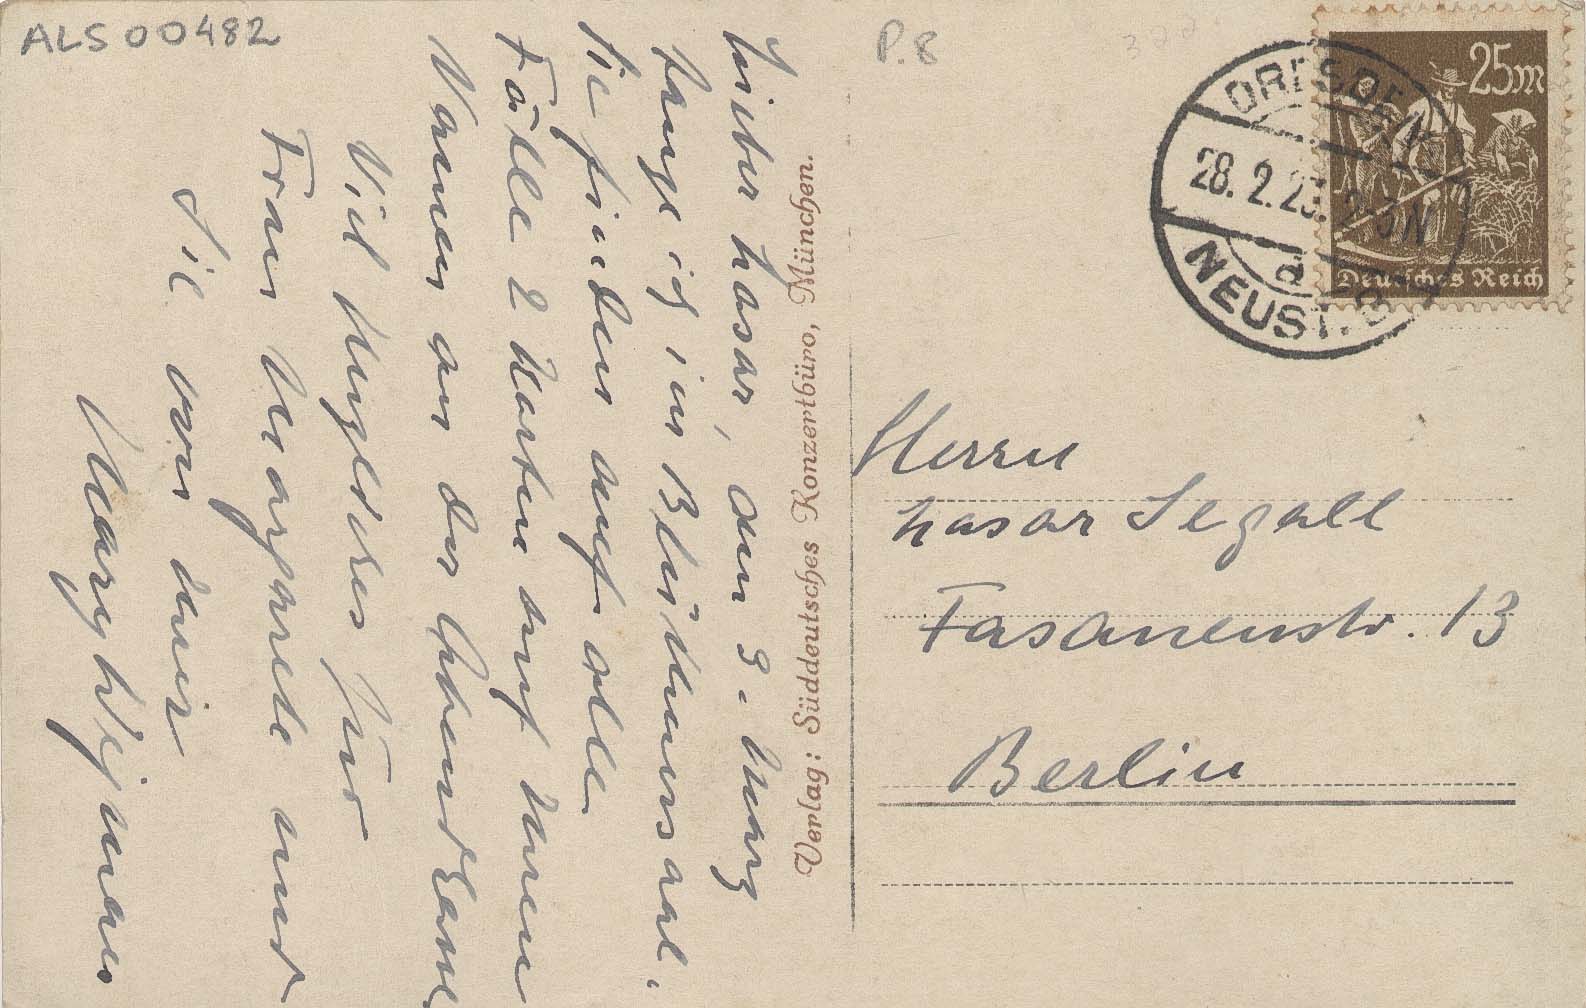 ALS 00482
P. 8
Lieber Lasar, am 3. März
tanze ich im Blüthnersaal.
Sie finden auf alle
Fälle 2 Karten auf Ihren
Namen an der Abendkasse
Viel Ungutes für
Frau Margarete und
Sie von mir
Mary Wigman
Verlag: Süddeutsches Konzertbüro, München.
DRESDEN
28. 2. 23. 2-3 N
NEUST.
25 M
Deutsches Reich
Herrn
Lasar Segall
Fasanenstr. 13
Berlin